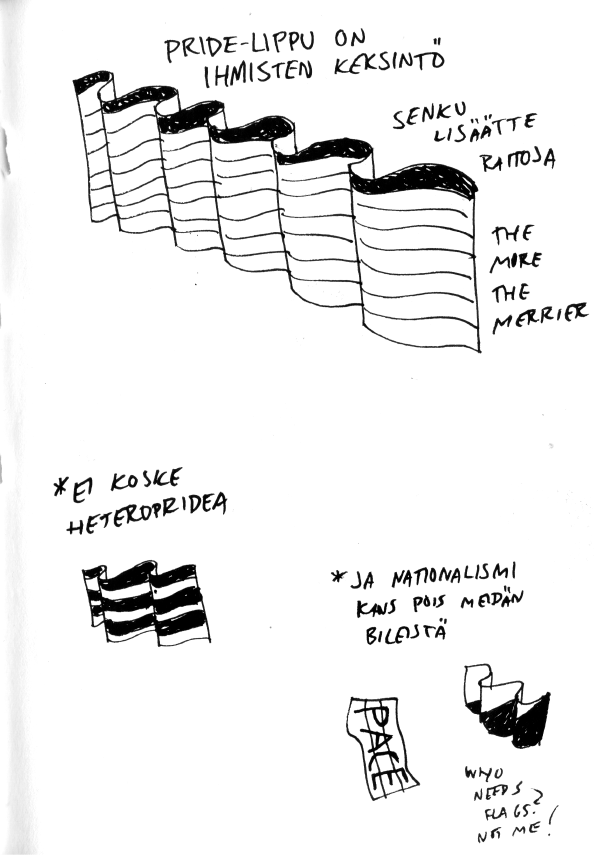 PRIDE-LIPPU ON
IHMISTEN KEKSINTÖ
SENKU
LISÄÄTTE
RAITOJA
THE
MORE
THE
MERRIER
*EI KOSKE
HETEROPRIDEA
*JA NATIONALISMI
KANS POIS MEIDÄN
BILEISTÄ
PACE
WHO
NEEDS
FLAGS?
NOT ME!